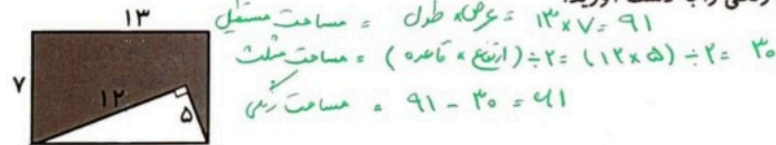 رنگی را به دست آورید.
۱۳
مساحت مستطیل = عرض × طول = ۱۳×۷=۹۱
۷
مساحت مثلث = (ارتفاع × قاعده) ÷۲ = (۱۲×۵)÷۲= ۳۰
۱۲
۵
مساحت رنگی = ۹۱ - ۳۰ = ۶۱